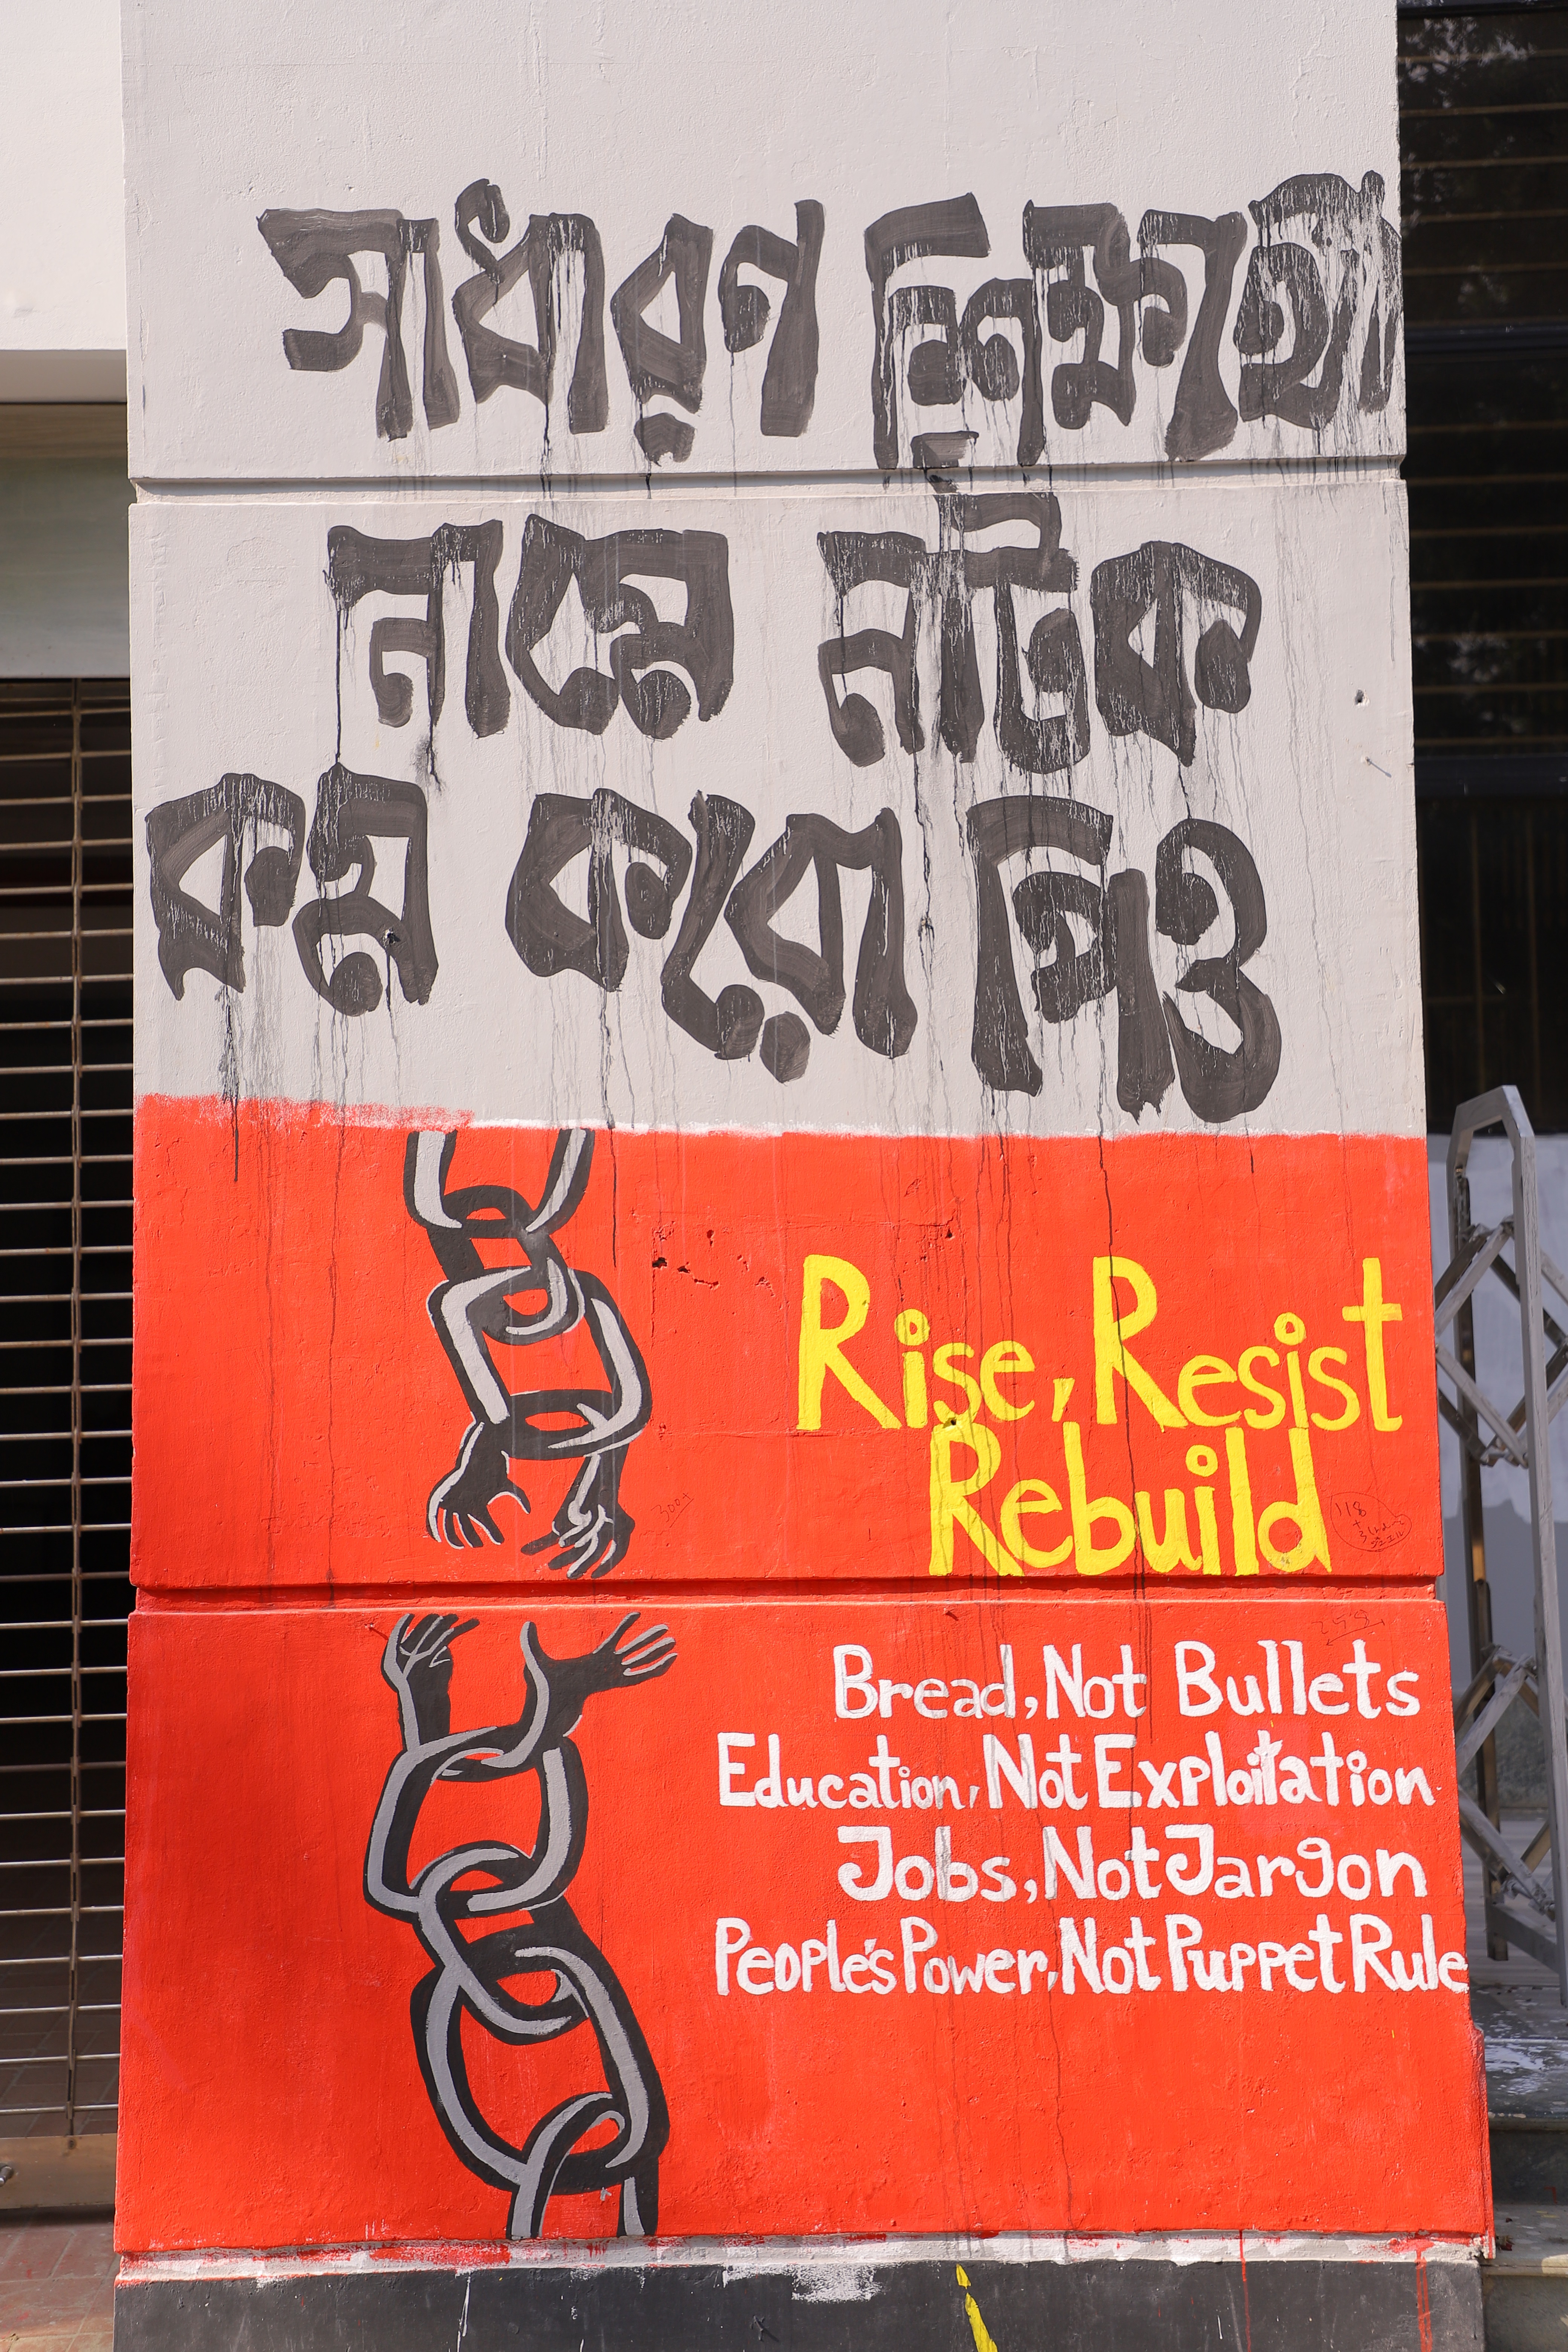 সাধারণ শিক্ষার্থী
নামে নাটক
কম করো পিও
Rise, Resist
Rebuild
300+
118
Bread, Not Bullets
Education, Not Exploitation
Jobs, Not Jargon
People's Power, Not Puppet Rule